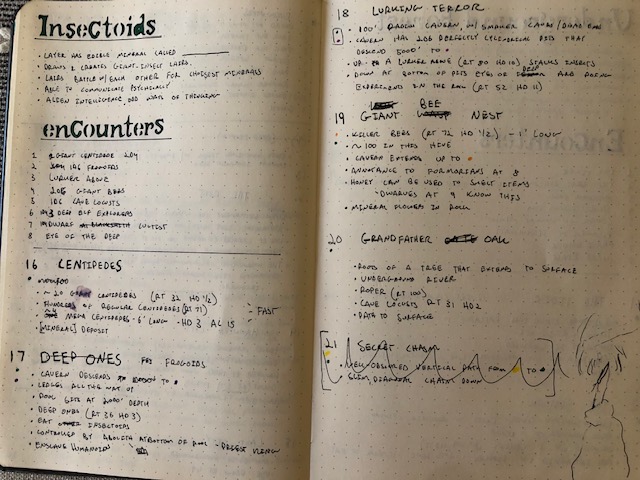 Insectoids
• LAYER HAS EDIBLE MINERAL CALLED ______
• DRAWS & CREATES GIANT INSECT LAIRS.
• LAIRS BATTLE W/ EACH OTHER FOR CHOICEST MINERALS
• ABLE TO COMMUNICATE PSYCHICALLY
• ALIEN INTELLIGENCE ODD WAYS OF THINKING
enCounters
1 GIANT CENTIPEDE 2D4
2 1D6 FROGOIDS
3 LURKER ABOVE
4 2D6 GIANT BEES
5 1D6 CAVE LOCUSTS
6 DEEP ELF EXPLORERS
7 DWARF CULTIST
8 EYE OF THE DEEP
16 CENTIPEDES
• ~ 20 GIANT CENTIPEDES (RT 32 HD ½)
• HUNDREDS OF REGULAR CENTIPEDES (RT 71)
FAST
• MEGA CENTIPEDES - 6' LONG - HD 3 AC 15
• [MINERAL] DEPOSIT
17 DEEP ONES FROGOIDS
• CAVERN DESCENDS TO
• LEDGES ALL THE WAY UP
• POOL SITS AT 2000' DEPTH
• DEEP ONES (RT 36 HD 3)
• EAT INSECTOIDS
• CONTROLLED BY ABOLETH AT BOTTOM OF POOL - PRIEST
• ENSLAVE HUMANOIDS
18 LURKING TERROR
• 100' CAVERN W/ SMALLER CAVES / DEAD END
• CAVERN HAS 2D6 PERFECTLY CYLINDRICAL PITS THAT
DESCEND 5000' TO
• UP TO A LURKER ABOVE (RT 80 HD 10) STALKS INSECTS
• DOWN AT BOTTOM OF PITS EYES OF DEEP ARE DOING
EXPERIMENTS IN THE (RT 52 HD 11)
19 GIANT BEE NEST
• KILLER BEES (RT 72 HD ½) - 1' LONG
• ~100 IN THIS HIVE
• CAVERN EXTENDS UP TO
• ANNOYANCE TO FORMORIANS AT 8
• HONEY CAN BE USED TO SMELT ITEMS
- DWARVES AT 9 KNOW THIS
• MINERAL FLOWERS IN ROCK
20 GRANDFATHER OAK
• ROOTS OF A TREE THAT EXTENDS TO SURFACE
• UNDERGROUND RIVER
• ROPER (RT 100)
• CAVE LOCUSTS RT 31 HD2
• PATH TO SURFACE
21 SECRET CHASM
• WELL-OBSCURED VERTICAL PATH FROM TO
• SLIM, DIAGONAL CHASM DOWN